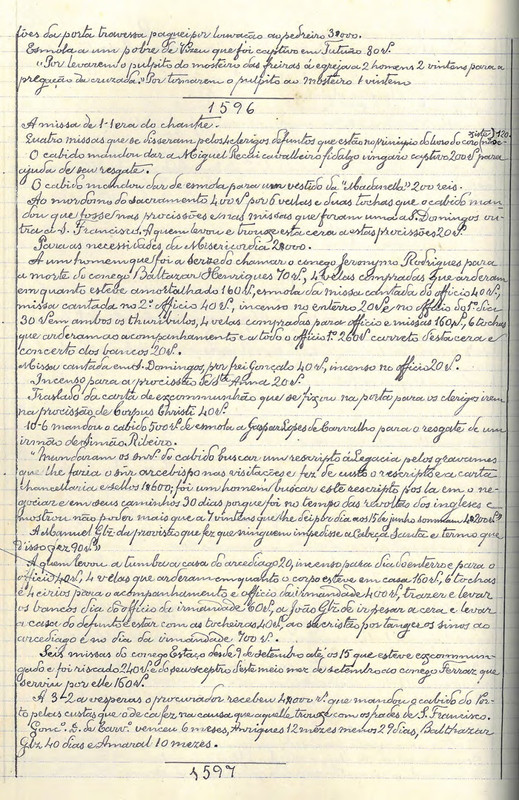 tões da porta travessa paguei por louvação ao pedreiro 3$000.
Esmola a um pobre de Vizeu que foi captivo em Tutuão 80 rs.
"Por levarem o pulpito do mosteiro das freiras á egreja a 2 homens 2 vintens para a
pregação da cruzada." Por tornarem o pulpito ao mosteiro 1 vintem
1596
A missa de 1-1 era do chantre.
Quatro missas que se disseram pelos 4 clerigos defuntos que estão no principio do livro do coro 120.
O cabido mandou dar a Miguel cavalleiro fidalgo ungaro captivo 200 rs. para
ajuda de seu resgate.
O cabido mandou dar de esmola para um vestido da "Madanella" 200 reis.
Ao mordomo do sacramento 400 rs. por 6 velas e duas tochas que o cabido man-
dou que fosse nas procissões e nas missas que foram uma a S. Domingos ou-
tra a S. Francisco. A quem levou e trouxe esta cera a estas procissões 20 rs.
Para as necessidades da Misericordia 2$000.
A um homem que foi a chamar o conego Jeronymo Rodrigues para
a morte do conego Balthazar Henriques 70 rs., 4 velas compradas que arderam
emquanto esteve amortalhado 160 rs., esmola da missa cantada do officio 40 rs.,
missa cantada no 2.º officio 40 rs., incenso no enterro 20 rs. e no officio do 1.º dia
30 rs. em ambos os thuribulos, 4 velas compradas para officio e missas 160 rs., 6 tochas
que arderam ao acompanhamento e a todo o officio 1$260 rs. carreto desta cera e
concerto dos bancos 20 rs.
Missa cantada em S. Domingos, por frei Gonçalo 40 rs., incenso no officio 20 rs.
Incenso para a procissão de Stª Anna 20 rs.
Traslado da carta de excommunhão que se fixou na porta para os clerigos irem
na procissão de Corpus Christi 40 rs.
10-6 mandou o cabido 500 rs. de esmola a Gaspar Lopes de Carvalho para o resgate de um
irmão de Simão Ribeiro.
"Mandaram os snrs. do cabido buscar um rescripto á Legacia pelos gravames
que lhe faria o snr arcebispo nas visitações e fez de custo o rescripto e a carta
chancellaria e sellos 1$600; foi um homem buscar este rescripto por la em o ne-
gociar e em seus caminhos 30 dias porque foi no tempo das revoltas dos inglezes e
mostrou não poder mais que a 7 vintens que lhe dei por dia aos 15 de junho sommam 4$200 rs."
A Manuel Glz da provisão que fez que ninguem impedisse a Cabeça Santa e termo que
disso fez 90 rs.
A quem levou a tumba a casa do arcediago 20, incenso para dia do enterro e para o
officio 40 rs., 4 velas que arderam emquanto o corpo esteve em casa 160 rs., 6 tochas
e 4 cirios para o acompanhamento e officio da irmandade 400 rs., trazer e levar
os bancos dia do officio da irmandade 60 rs., a João Glz de ir pesar a cera e levar
a casa do defunto e estar com as tocheiras 40 rs., ao sacristão por tanger os sinos ao
arcediago e no dia da irmandade 700 rs.
Seis missas do conego Estaço desde 9 de setembro até os 15 que esteve excommun-
gado e foi riscado 240 rs. e do seu sceptro deste meio mez de setembro ao conego Ferraz que
serviu por elle 160 rs.
A 3-2 a vesperas o procurador recebeu 4$000 rs. que mandou o cabido do Por-
to pelas custas que o de cá fez na causa que aquelle trouxe com os frades de S. Francisco.
Gonç.º D. de Carv.º venceu 6 meses, Anriques 12 mezes menos 29 dias, Balthazar
Glz 40 dias e Amaral 10 mezes.
1597